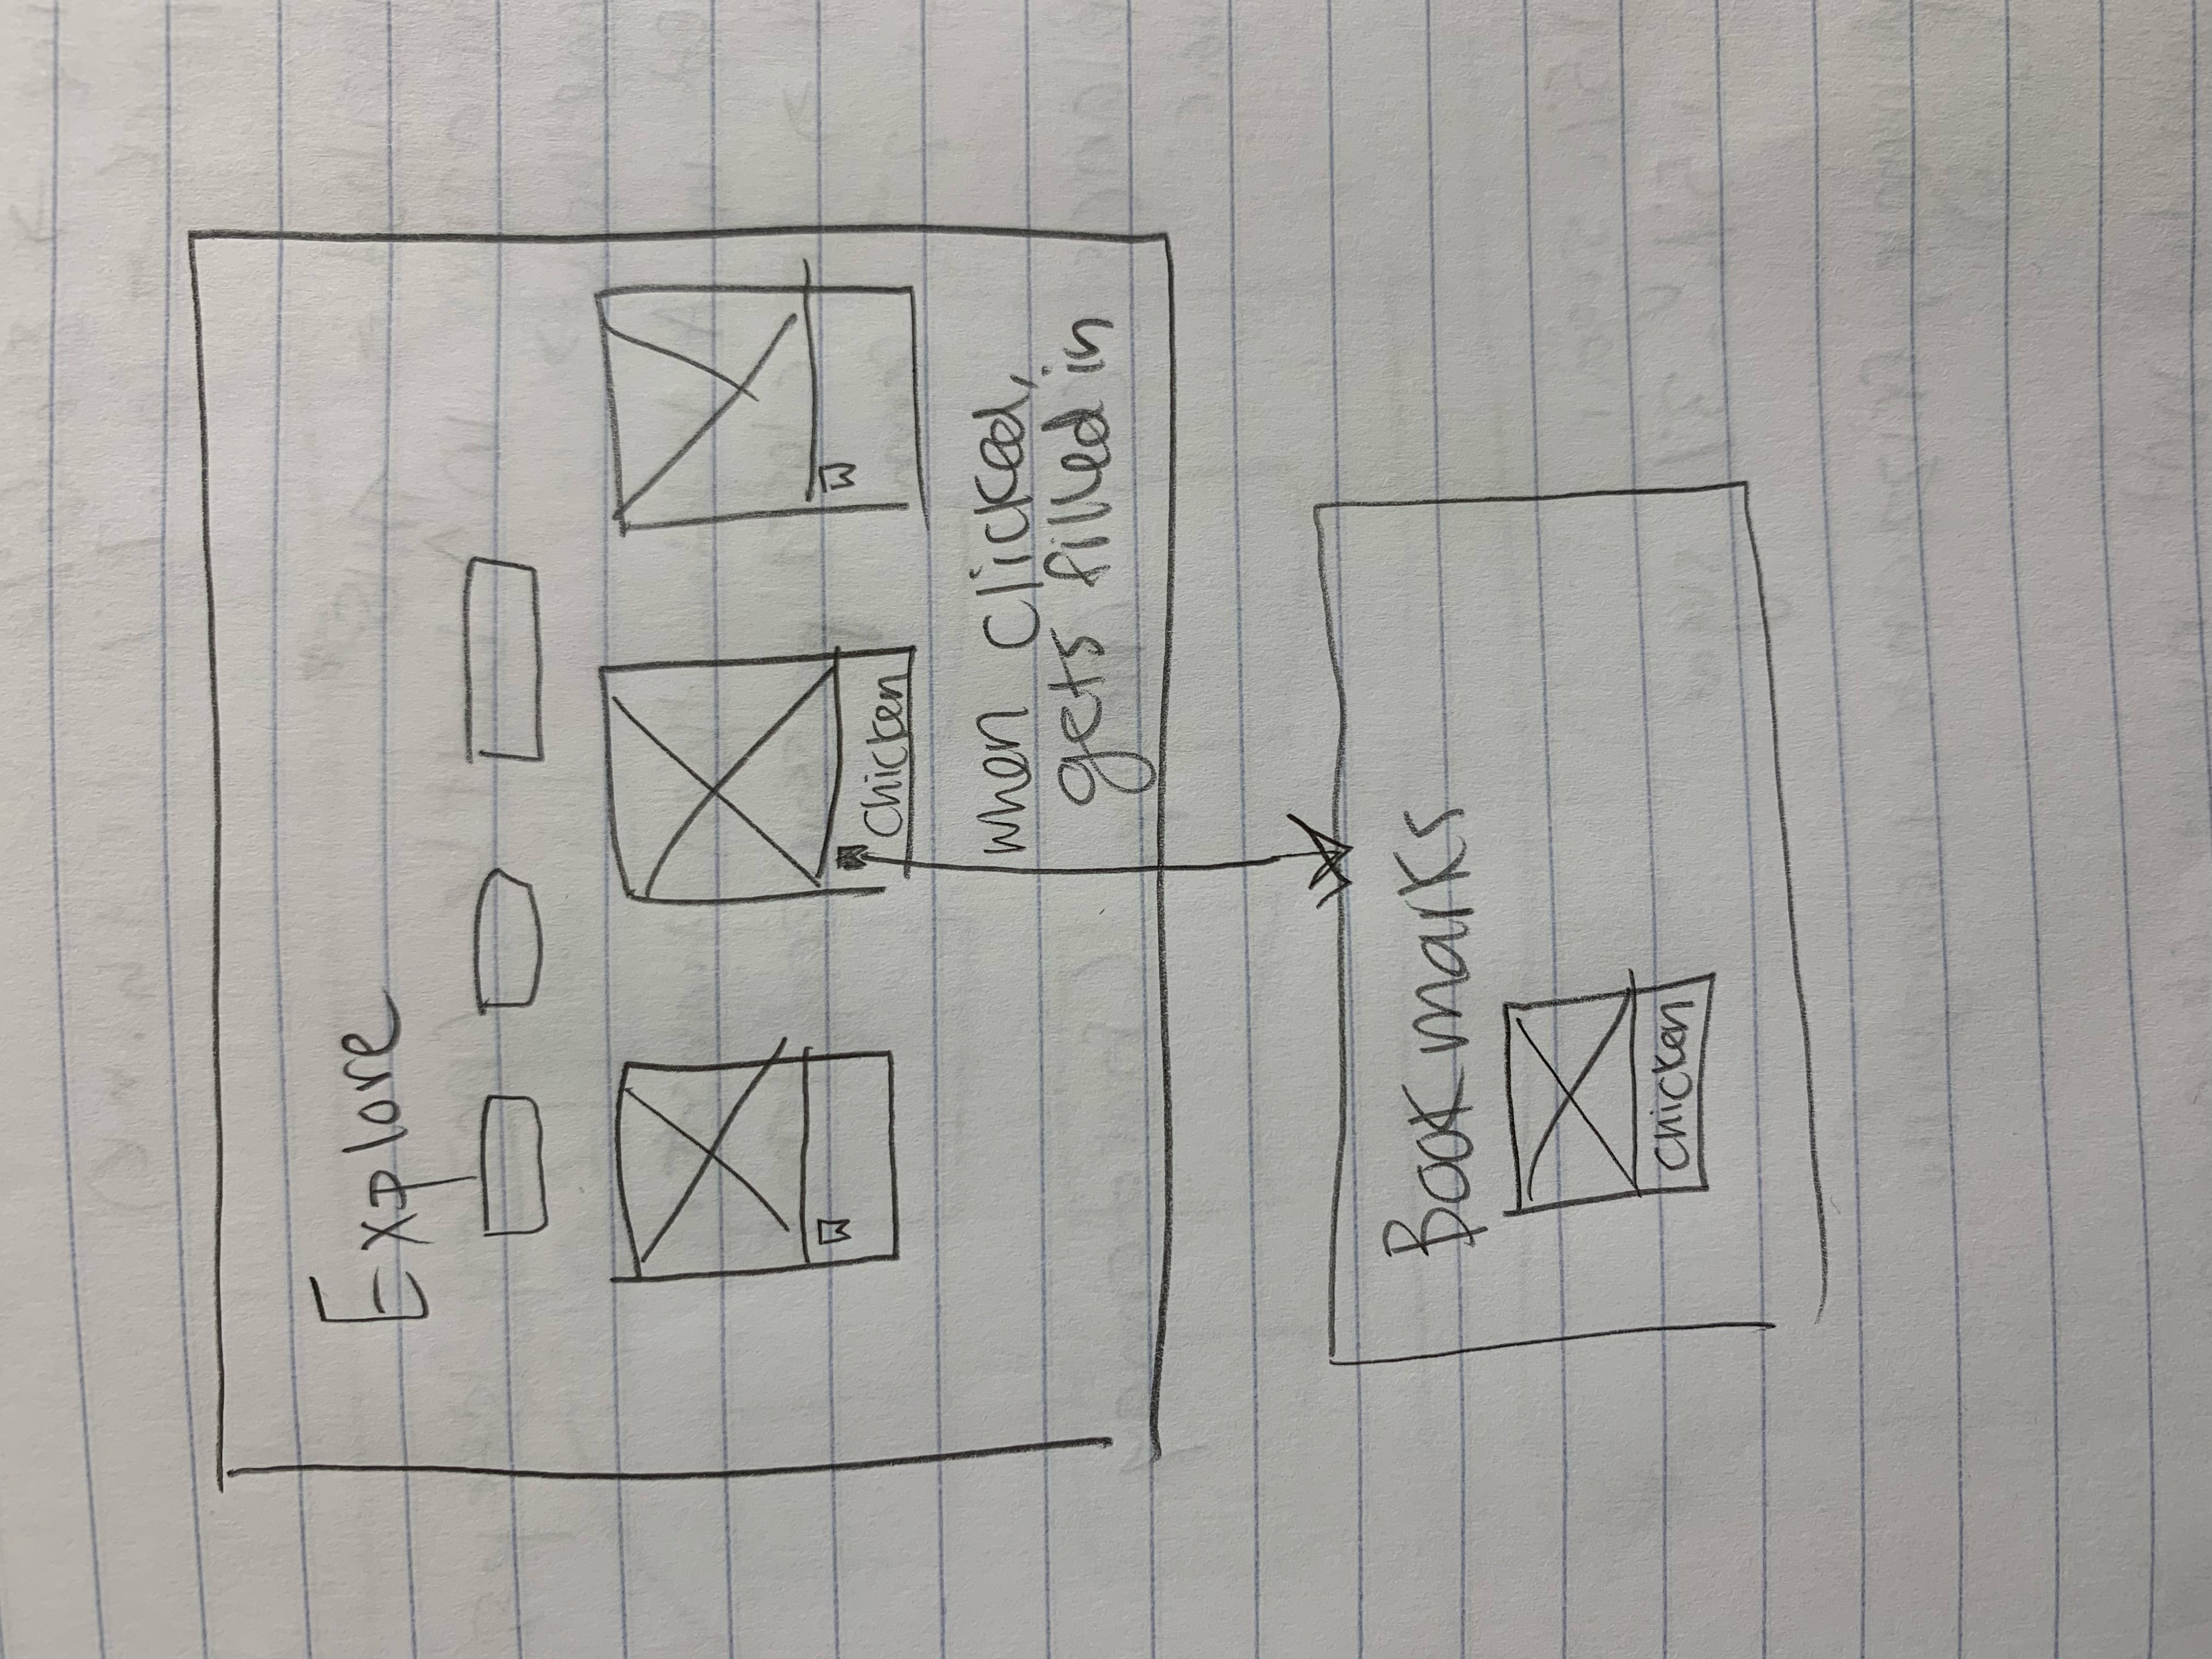 Explore
Chicken
when clicked,
gets filled in
Bookmarks
chicken